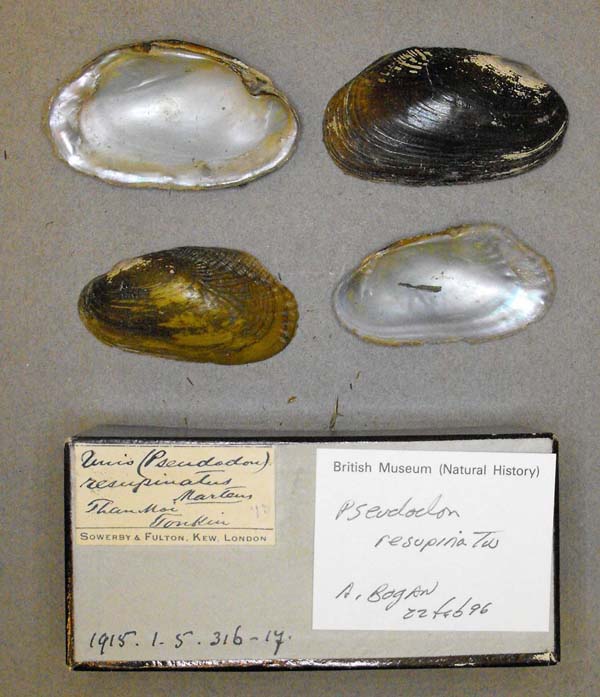 Unio (Pseudodon)
resupinatus
Martens
Than Moi
Tonkin
SOWERBY & FULTON, KEW, LONDON
1915.1.5.316-17.
British Museum (Natural History)
Pseudodon
resupinatus
A. BOGAN
22 feb 96